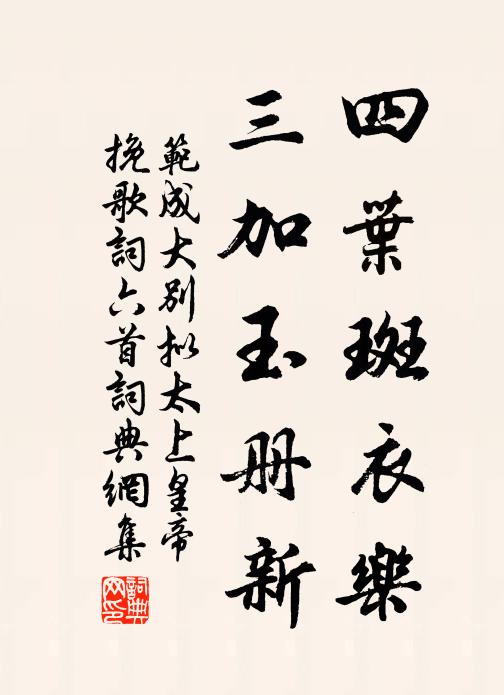 四葉斑衣樂
三加玉册新
範成大別拟太上皇帝
挽歌詞六首詞典網集
詞典网印